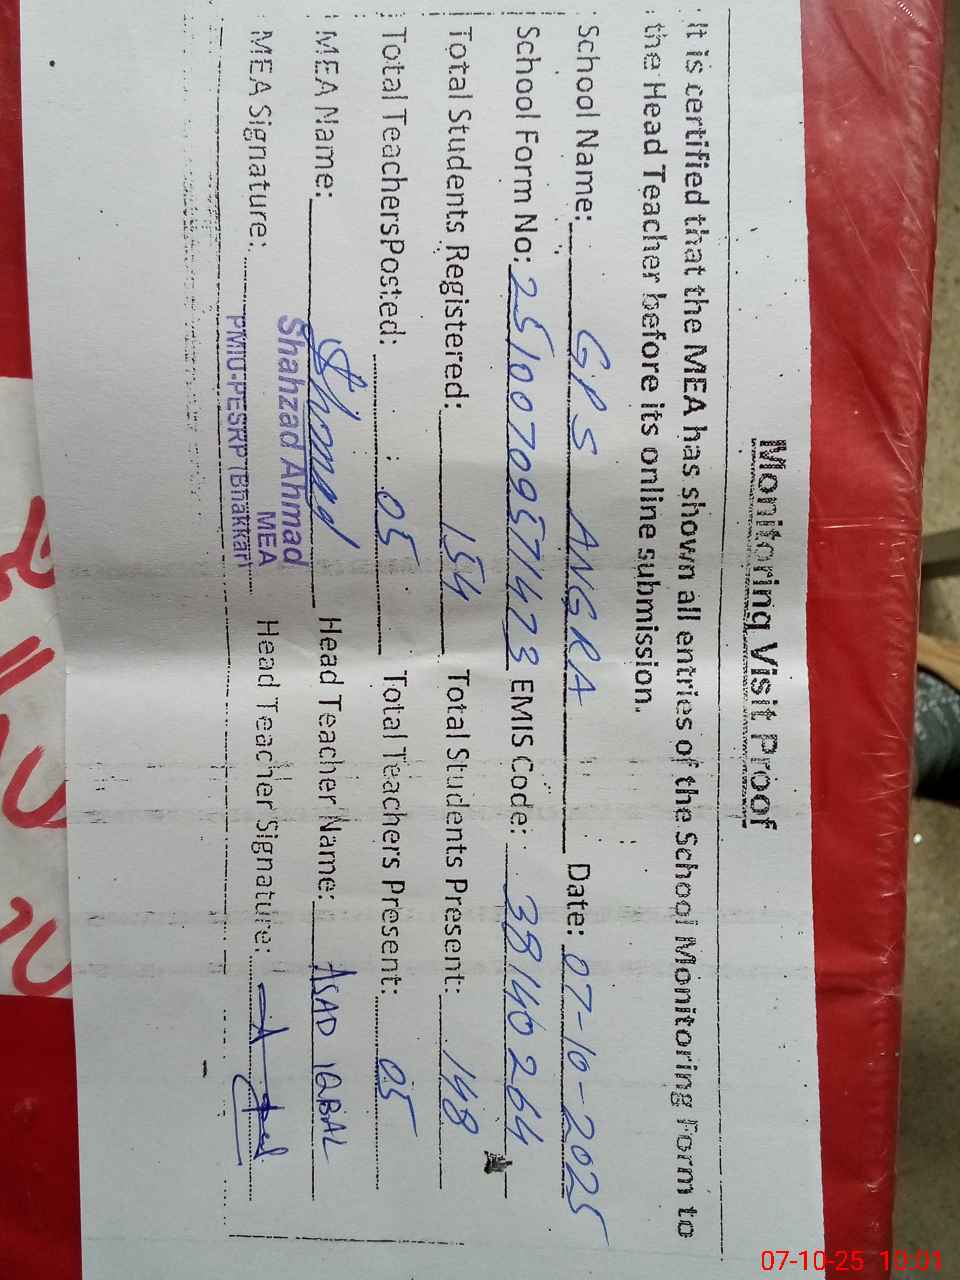 Monitoring Visit Proof
It is certified that the MEA has shown all entries of the School Monitoring Form to
the Head Teacher before its online submission.
School Name: GPS ANGRA Date: 07-10-2025
School Form No: EMIS Code: 38140264
Total Students Registered: 154 Total Students Present: 148
Total TeachersPosted: 05 Total Teachers Present: 05
MEA Name: Head Teacher Name: ASAD IQBAL
MEA Signature: Head Teacher Signature:
Shahzad Ahmad
MEA
PMIU-PESRP (Bhakkar)
07-10-25 10:01